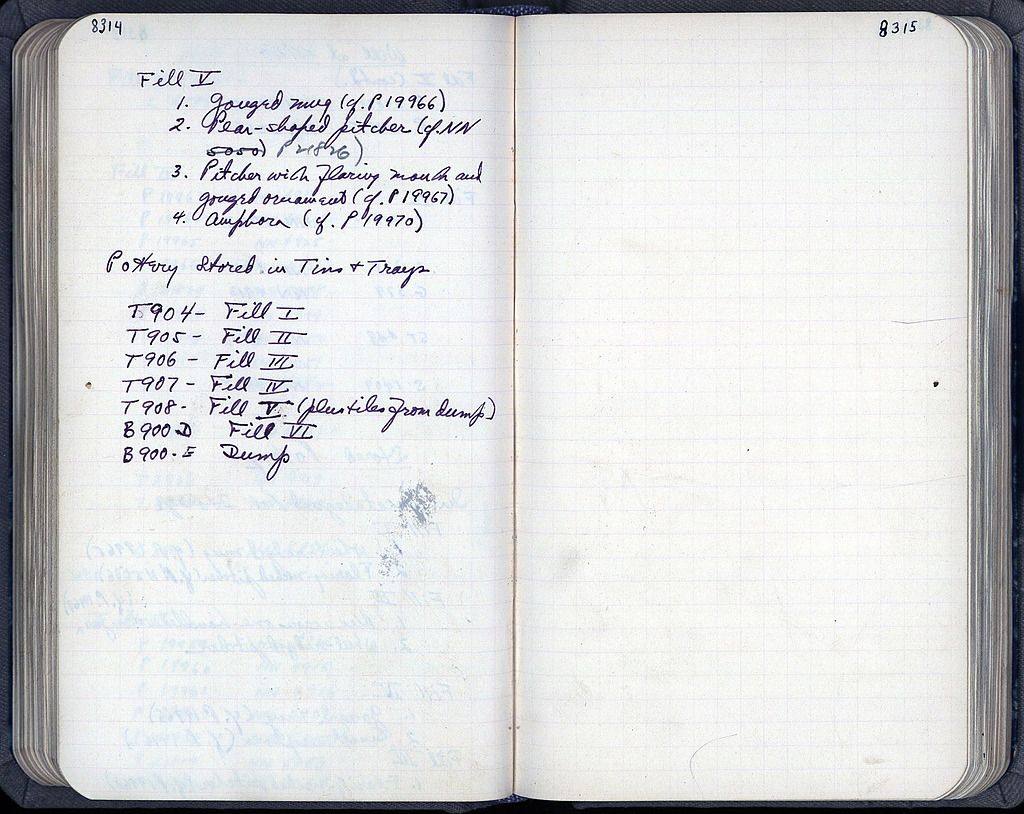 8314
Fill V
1. Gouged mug (cf. P 19966)
2. Pear-shaped pitcher (cf. NN
5050) P 21826)
3. Pitcher with flaring mouth and
gouged ornament (cf. P 19967)
4. Amphora (cf. P 19970)
Pottery Stored in Tins + Trays
T904 - Fill I
T905 - Fill II
T906 - Fill III
T907 - Fill IV
T908 - Fill V (plus tiles from dump)
B900-D Fill VI
B900-E Dump
8315